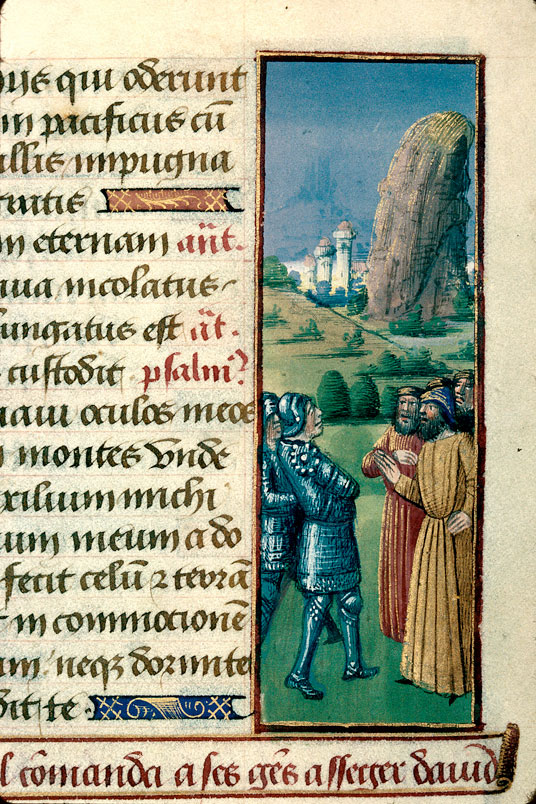 hijs qui oderunt
m pacificus cū
illis impugna
gratis
m eternam añt.
ua incolatus
ungatus est āt.
custodit psalmꝰ
uaui oculos meos
montes unde
xilium michi
um meum a do
fecit celū ⁊ terrā
t in commotionē
um neqꝫ dormite
dit te
l cōmanda a ses gēs asseger dauid